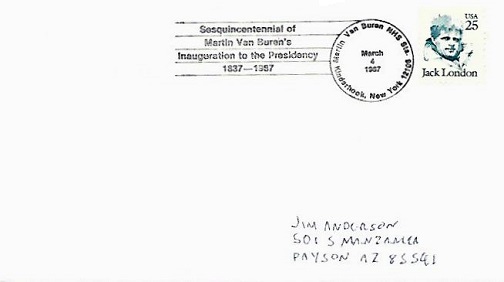 Sesquincentennial of
Martin Van Buren's
Inauguration to the Presidency
1837—1987
Martin Van Buren NHS Sta.
March
4
1987
Kinderhook, New York 12106
USA
25
Jack London
JIM ANDERSON
501 S MANZANITA
PAYSON AZ 85541